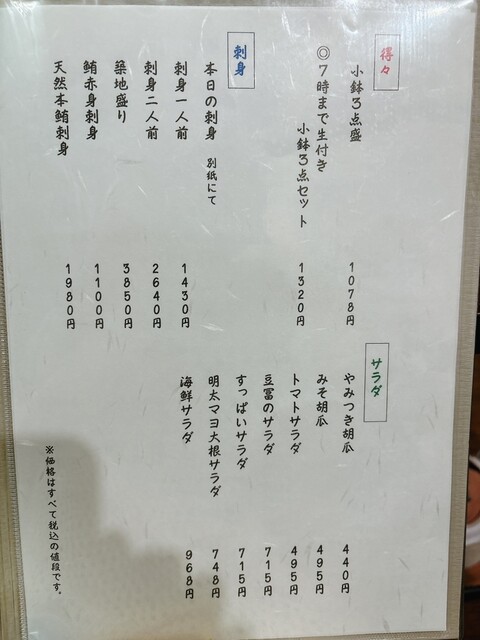 得々
小鉢3点盛 1078円
◎7時まで生付き
小鉢3点セット 1320円
刺身
本日の刺身 別紙にて
刺身一人前 1430円
刺身二人前 2640円
築地盛り 3850円
鮪赤身刺身 1100円
天然本鮪刺身 1980円
サラダ
やみつき胡瓜 440円
みそ胡瓜 495円
トマトサラダ 495円
豆冨のサラダ 715円
すっぱいサラダ 715円
明太マヨ大根サラダ 748円
海鮮サラダ 968円
※価格はすべて税込の値段です。